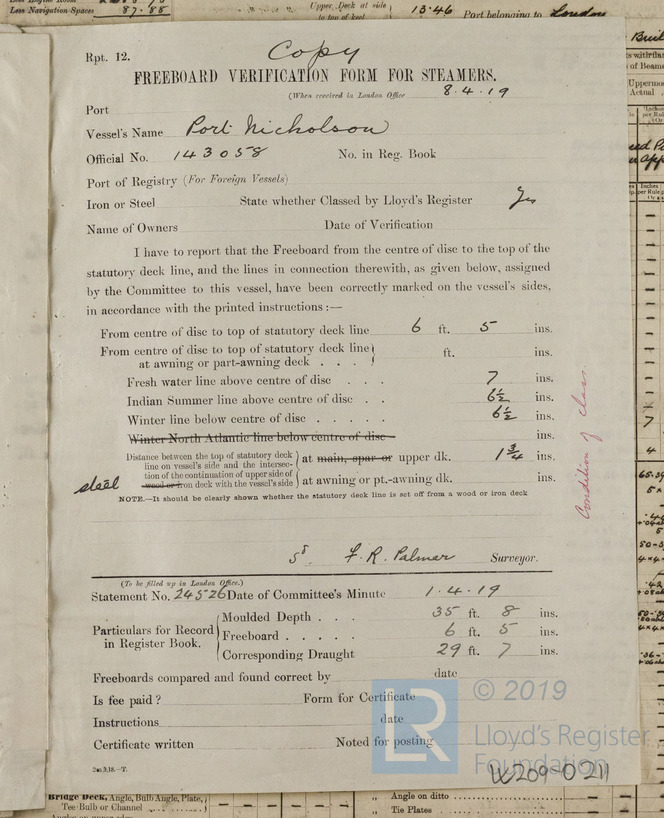 Less Navigation Spaces 87.85
Upper Deck at side
to top of keel 13.46 Port belonging to London
Copy
Rpt. 12.
FREEBOARD VERIFICATION FORM FOR STEAMERS.
(When received in London Office 8.4.19
Port
Vessel's Name Port Nicholson
Official No. 143058 No. in Reg. Book
Port of Registry (For Foreign Vessels)
Iron or Steel State whether Classed by Lloyd's Register Yes
Name of Owners Date of Verification
I have to report that the Freeboard from the centre of disc to the top of the
statutory deck line, and the lines in connection therewith, as given below, assigned
by the Committee to this vessel, have been correctly marked on the vessel's sides,
in accordance with the printed instructions :—
From centre of disc to top of statutory deck line 6 ft. 5 ins.
From centre of disc to top of statutory deck line
at awning or part-awning deck . . . ft. ins.
Fresh water line above centre of disc . . . 7 ins.
Indian Summer line above centre of disc . . 6½ ins.
Winter line below centre of disc . . . . . 6½ ins.
Winter North Atlantic line below centre of disc ins.
Distance between the top of statutory deck
line on vessel's side and the intersec-
tion of the continuation of upper side of
wood or iron deck with the vessel's side
at main, spar or upper dk. 1¾ ins.
at awning or pt.-awning dk. ins.
steel
NOTE.—It should be clearly shown whether the statutory deck line is set off from a wood or iron deck
Condition of class.
sd. F. R. Palmer Surveyor.
(To be filled up in London Office.)
Statement No. 24526 Date of Committee's Minute 1.4.19
Particulars for Record
in Register Book.
Moulded Depth . . . 35 ft. 8 ins.
Freeboard . . . . . 6 ft. 5 ins.
Corresponding Draught 29 ft. 7 ins.
Freeboards compared and found correct by date
Is fee paid ? Form for Certificate
Instructions date
Certificate written Noted for posting
2m,9,18.—T.
LR © 2019
Lloyd's Register
Foundation
W209-0211
Bridge Deck, Angle, Bulb Angle, Plate,
Tee Bulb or Channel
„ Angle on ditto
„ Tie Plates